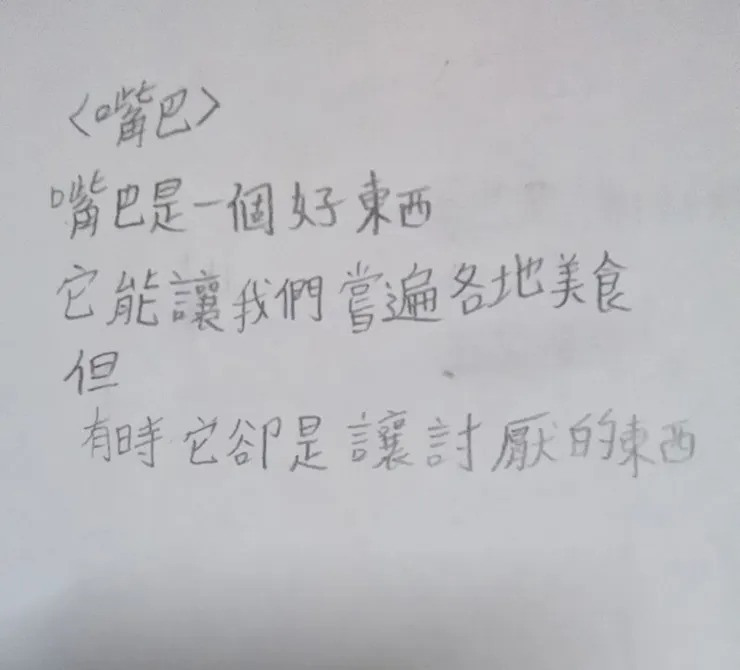 〈嘴巴〉
嘴巴是一個好東西
它能讓我們嘗遍各地美食
但
有時它卻是讓討厭的東西